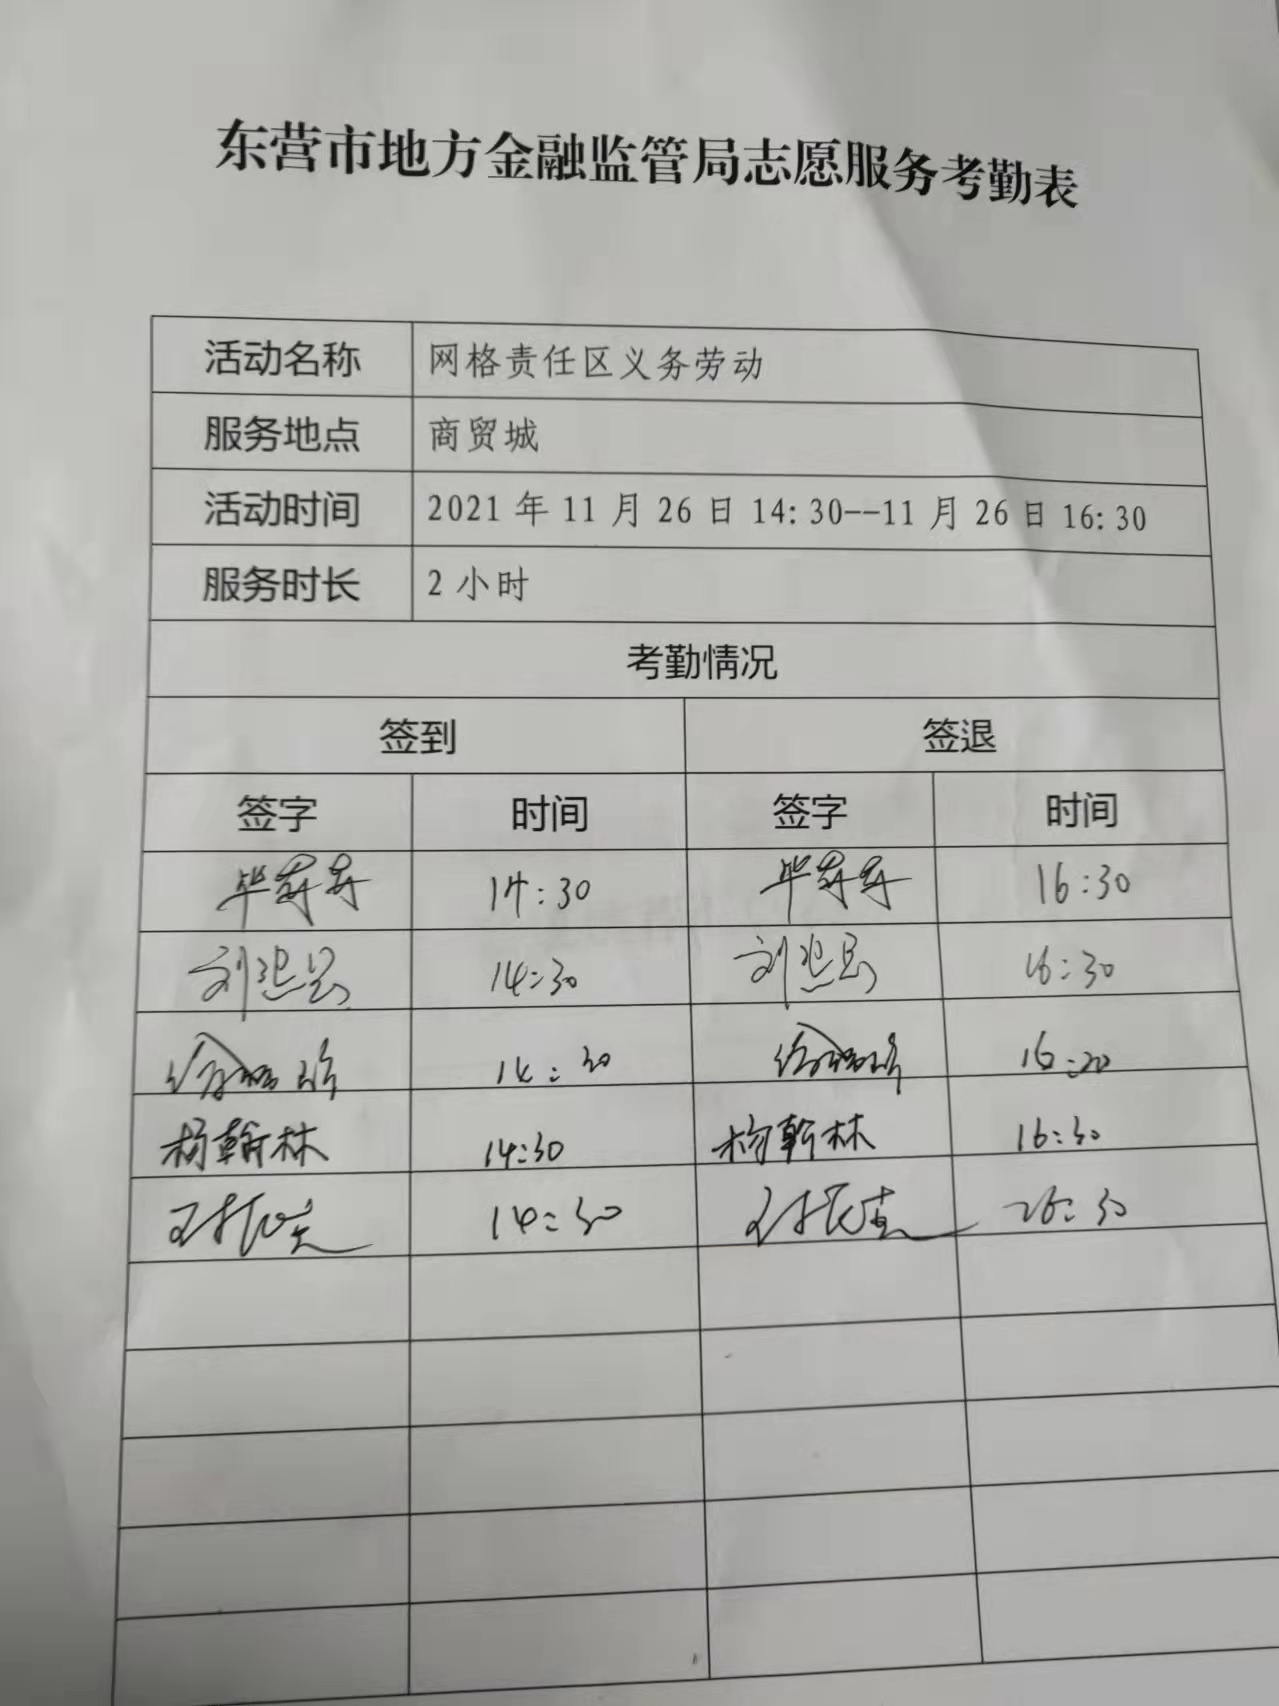 东营市地方金融监管局志愿服务考勤表
活动名称 网格责任区义务劳动
服务地点 商贸城
活动时间 2021年11月26日14:30--11月26日16:30
服务时长 2小时
考勤情况
签到 签退
签字 时间 签字 时间
14:30 16:30
14:30 16:30
14:30
杨翰林 14:30 杨翰林 16:30
14:30